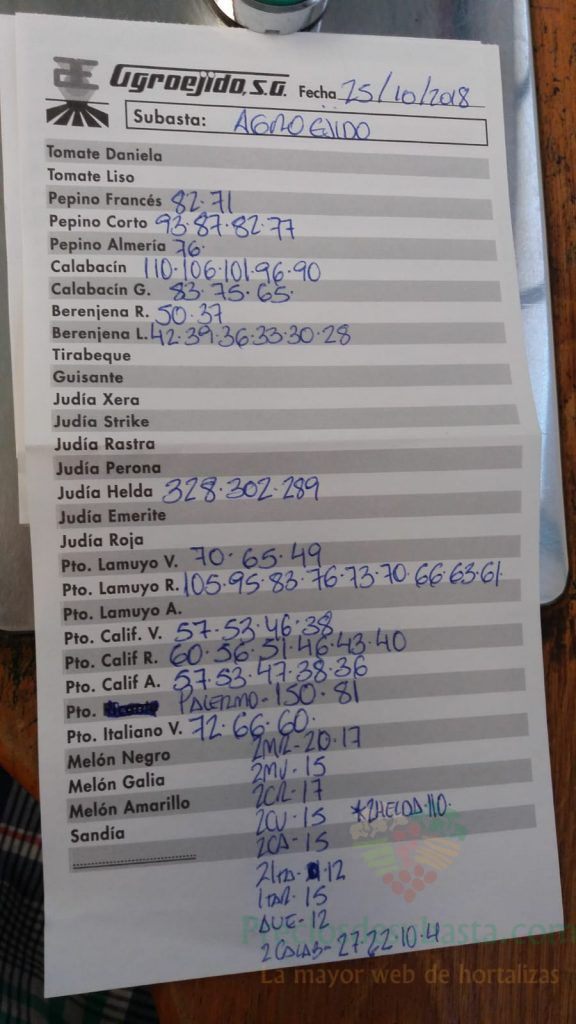 Agroejido, S.A. Fecha 25/10/2018
Subasta: AGROEJIDO
Tomate Daniela
Tomate Liso
Pepino Francés 82·71
Pepino Corto 93·87·82·77
Pepino Almería 76·
Calabacín 110·106·101·96·90
Calabacín G. 83·75·65·
Berenjena R. 50·37
Berenjena L. 42·39·36·33·30·28
Tirabeque
Guisante
Judía Xera
Judía Strike
Judía Rastra
Judía Perona
Judía Helda 328·302·289
Judía Emerite
Judía Roja
Pto. Lamuyo V. 70·65·49
Pto. Lamuyo R. 105·95·83·76·73·70·66·63·61·
Pto. Lamuyo A.
Pto. Calif. V. 57·53·46·38
Pto. Calif R. 60·56·51·46·43·40
Pto. Calif A. 57·53·47·38·36
Pto. PALERMO- 150·81
Pto. Italiano V. 72·66·60·
Melón Negro 2MR-20·17
Melón Galia 2MV-15
Melón Amarillo 2CR-17
Sandía 2CV-15 *2HELDA·110·
2CA-15
2ITA-12
1TAR-15
AUE-12
2CALAB-27·22·10·4
Preciosdesubasta.com
La mayor web de hortalizas